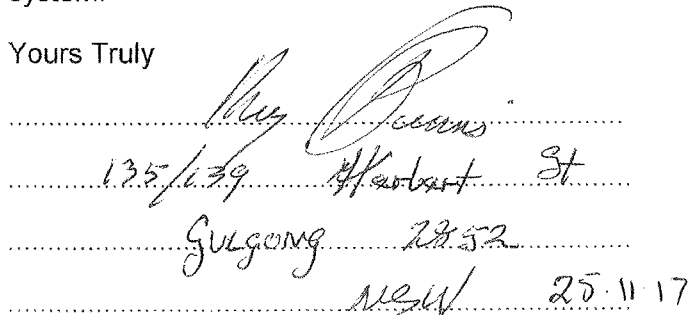 Yours Truly
135/139 Harbart St
Gulgong 2852
NSW 25.11.17